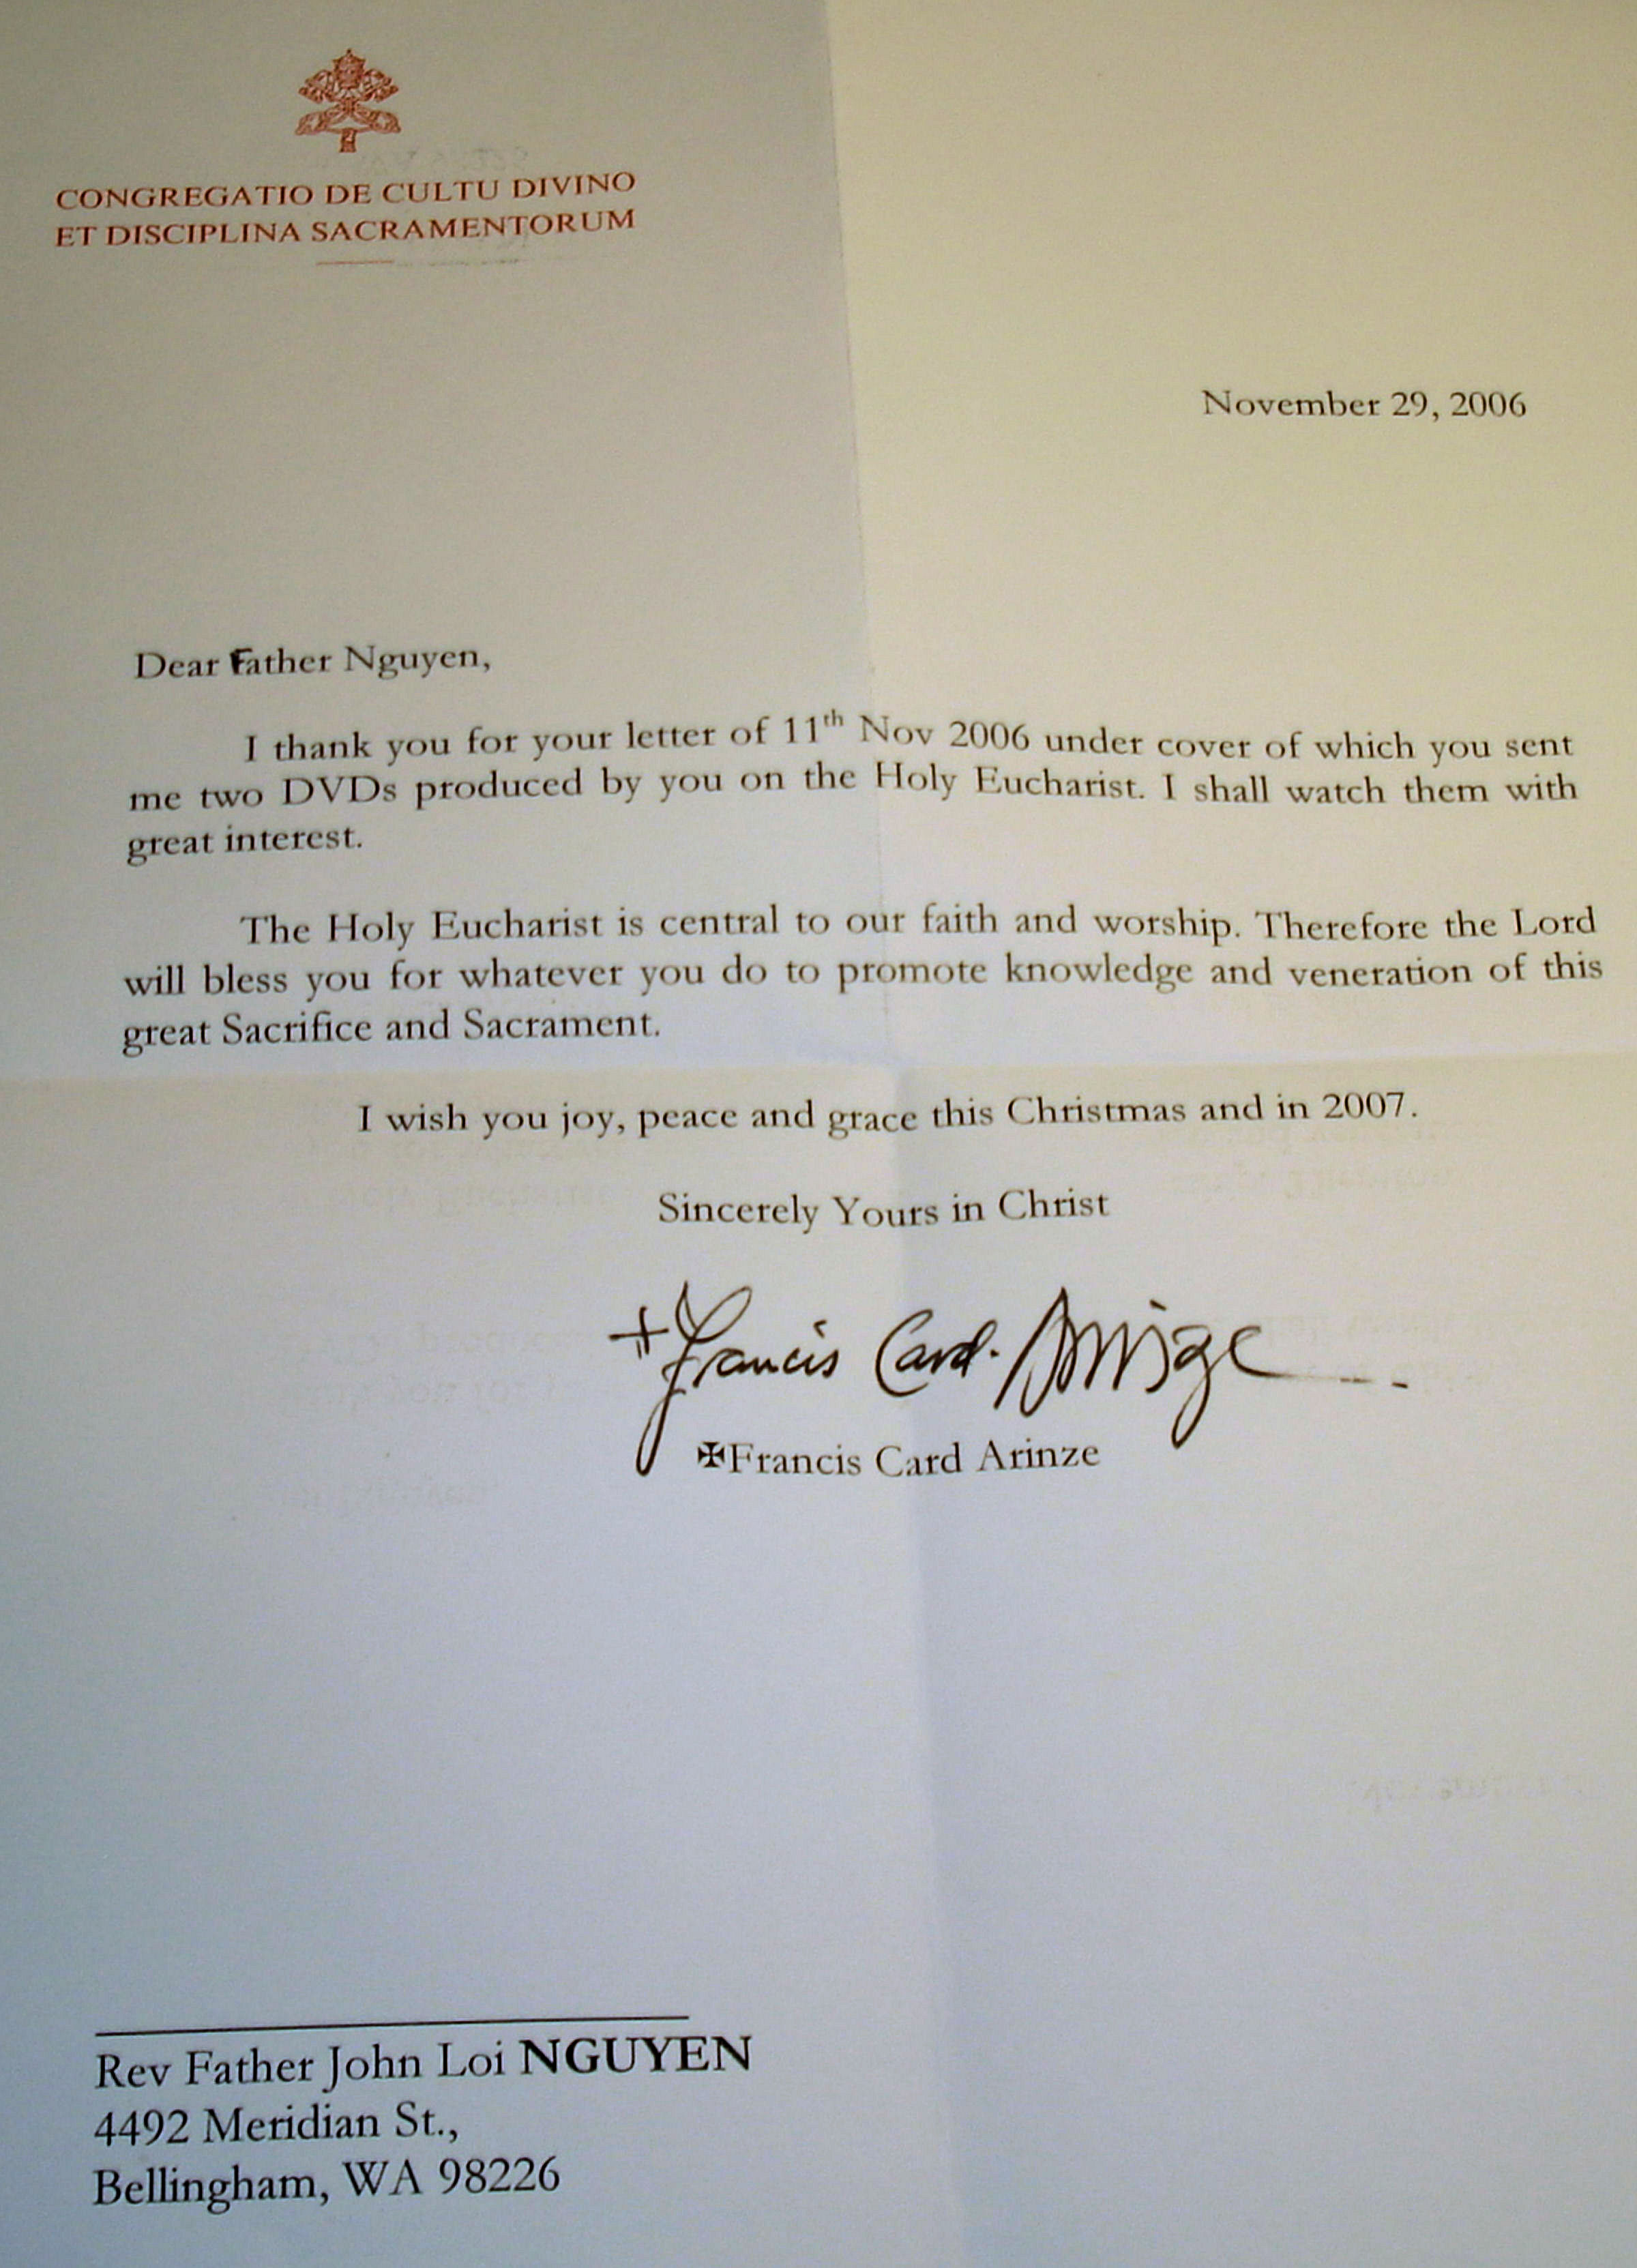 CONGREGATIO DE CULTU DIVINO
ET DISCIPLINA SACRAMENTORUM
November 29, 2006
Dear Father Nguyen,
I thank you for your letter of 11th Nov 2006 under cover of which you sent
me two DVDs produced by you on the Holy Eucharist. I shall watch them with
great interest.
The Holy Eucharist is central to our faith and worship. Therefore the Lord
will bless you for whatever you do to promote knowledge and veneration of this
great Sacrifice and Sacrament.
I wish you joy, peace and grace this Christmas and in 2007.
Sincerely Yours in Christ
+Francis Card. Arinze
✠Francis Card Arinze
Rev Father John Loi NGUYEN
4492 Meridian St.,
Bellingham, WA 98226